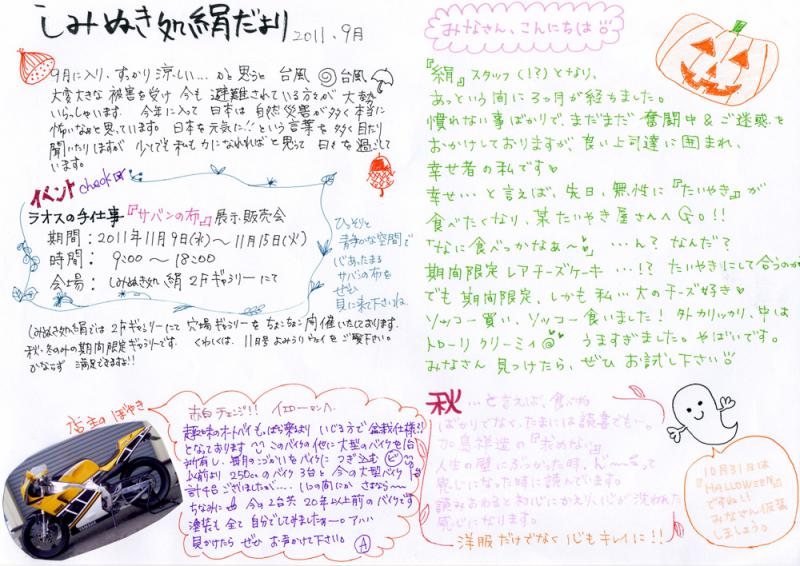 しみぬき処絹だより 2011.9月
9月に入り、すっかり涼しい…かと思うと 台風 台風
大変大きな 被害を受け 今も 避難されている方々が 大勢
いらっしゃいます。 今年に入って 日本は 自然災害が多く 本当に
怖いなぁと思っています。 日本を元気に!! という言葉を 多く 目にたり
聞いたりしますが 少しでも 私も 力になれればと思って 日々を 過ごして
います。
イベント check
ラオスの手仕事『サバンの布』展示・販売会
期間:2011年11月9日(水)〜11月15日(火)
時間: 9:00 〜 18:00
会場: しみぬき処 絹 2Fギャラリーにて
ひっそりと
静かな空間で
サバンの布を
ぜひ
見に来て下さいね
しみぬき処絹では 2Fギャラリーにて 穴場ギャラリーを ちょこちょこ 開催いたしております。
秋・冬のみの期間限定ギャラリーです. くわしくは、11月号 よみうりウェイを ご覧下さい。
かならず 満足できますよ!!
みなさん、こんにちは
『絹』スタッフ(!?)となり、
あっという間に3ヶ月が経ちました。
慣れない事ばかりで、まだまだ 奮闘中 & ご迷惑を
おかけしておりますが、良い上司達に囲まれ、
幸せ者の私です♥
幸せ…と言えば、先日、無性に『たいやき』が
食べたくなり、某たいやき屋さんへGO!!
「なに食べっかなぁ〜」 …ん? なんだ?
期間限定レアチーズケーキ …!? たいやきにして合うのか
でも 期間限定、しかも 私…大のチーズ好き♥
ソッコー買い、ソッコー食いました! 外カリッカリ、中は
トローリ クリーミィ うますぎました。やばいです。
みなさん 見つけたら、ぜひ お試し下さい
店主のぼやき
趣味のオートバイも、もっぱら乗るより いじる方で 盆栽仕様!!
となっております このバイクの他に 大型のバイクを1台
所有し、毎月のこづかいをバイクに つぎ込む
以前より 250ccのバイク 3台と 今の大型バイク
計4台ございましたが… いつの間にか さよなら〜
ちなみに 今の2台共 20年以上前のバイクです
塗装も全て 自分でしてみましたョ〜。アハハ
見かけたら ぜひ お声かけて下さい。 A
秋 …と言えば、食べね
ばかりでなく、たまには読書でも〜。
加島祥造の『求めない』
人生の壁にぶつかった時、ん〜〜〜って
感じになった時に読んでいます。
読みおわると初心にかえり、心が洗われた
感じになります。
洋服だけでなく 心もキレイに!!
10月31日は
『HALLOWEEN』
ですね!!
みなさん仮装
しましょう。